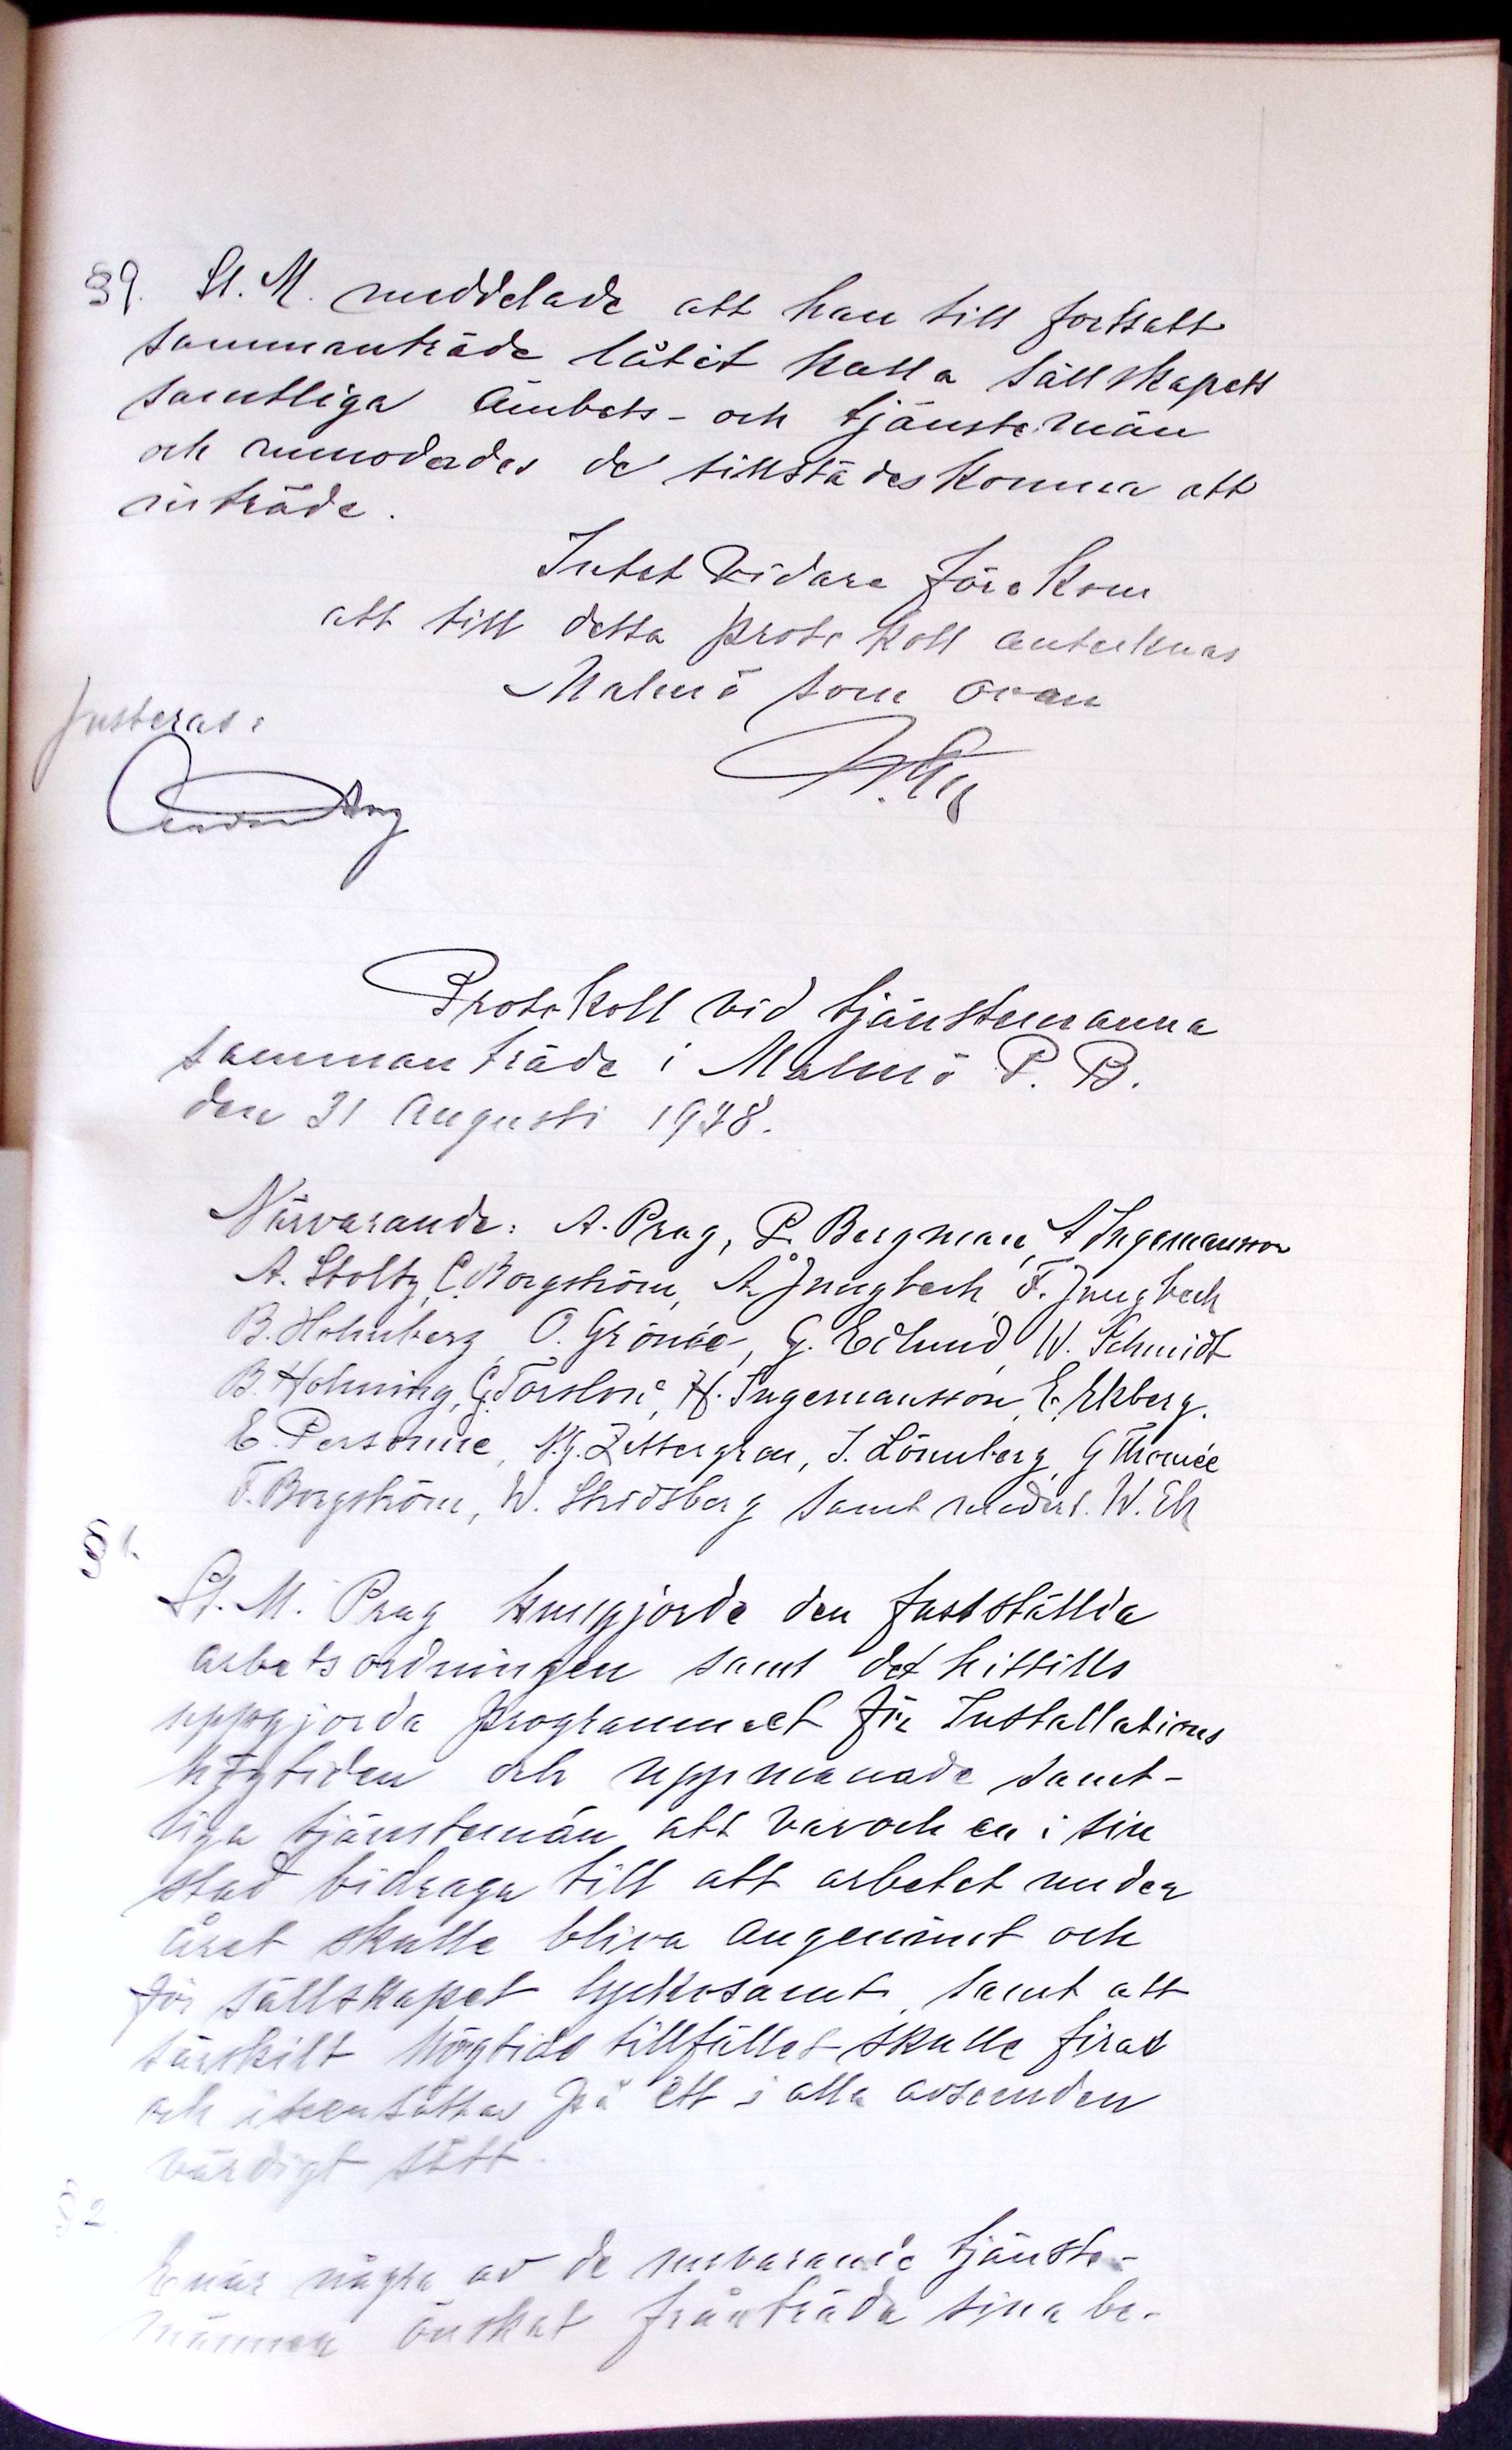 §9. St. M. meddelade att han till fortsatt
sammanträde låtit kalla sällskapets
samtliga Ämbets- och tjänstemän
och anmodades de tillstädeskomna att
inträde.
Intet vidare förekom
att till detta protokoll antecknas
Malmö som ovan
Justeras:
W. Ek
Protokoll vid tjänstemanna
sammanträde i Malmö P. B.
den 31 Augusti 1938.
Närvarande: A. Prag, P. Bergman, A Ingemansson
A. Stoltz, C. Borgström, Å Jungbeck, F. Jungbeck
B. Holmberg, O. Grönvæ, G. Edlund, W. Schmidt
B. Holming, G. Torslov, H. Ingemansson, E. Ekberg.
E. Personne, N.G. Zettergren, J. Lönnberg, G Thomée
F. Borgström, W. Stridsberg samt undert. W. Ek
§ 1.
St. M. Prag kungjorde den fastställda
arbetsordningen samt det hittills
uppgjorda programmet för Installations
högtiden och uppmanade samt-
liga tjänstemän att varoch en i sin
stad bidraga till att arbetet under
året skulle bliva angenämt och
för sällskapet lyckosamt, samt att
särskilt högtids tillfället skulle firas
och iscensättas på ett i alla avseenden
värdigt sätt.
§ 2.
Enär några av de nuvarande tjänste-
männen önskat frånträda sina be-